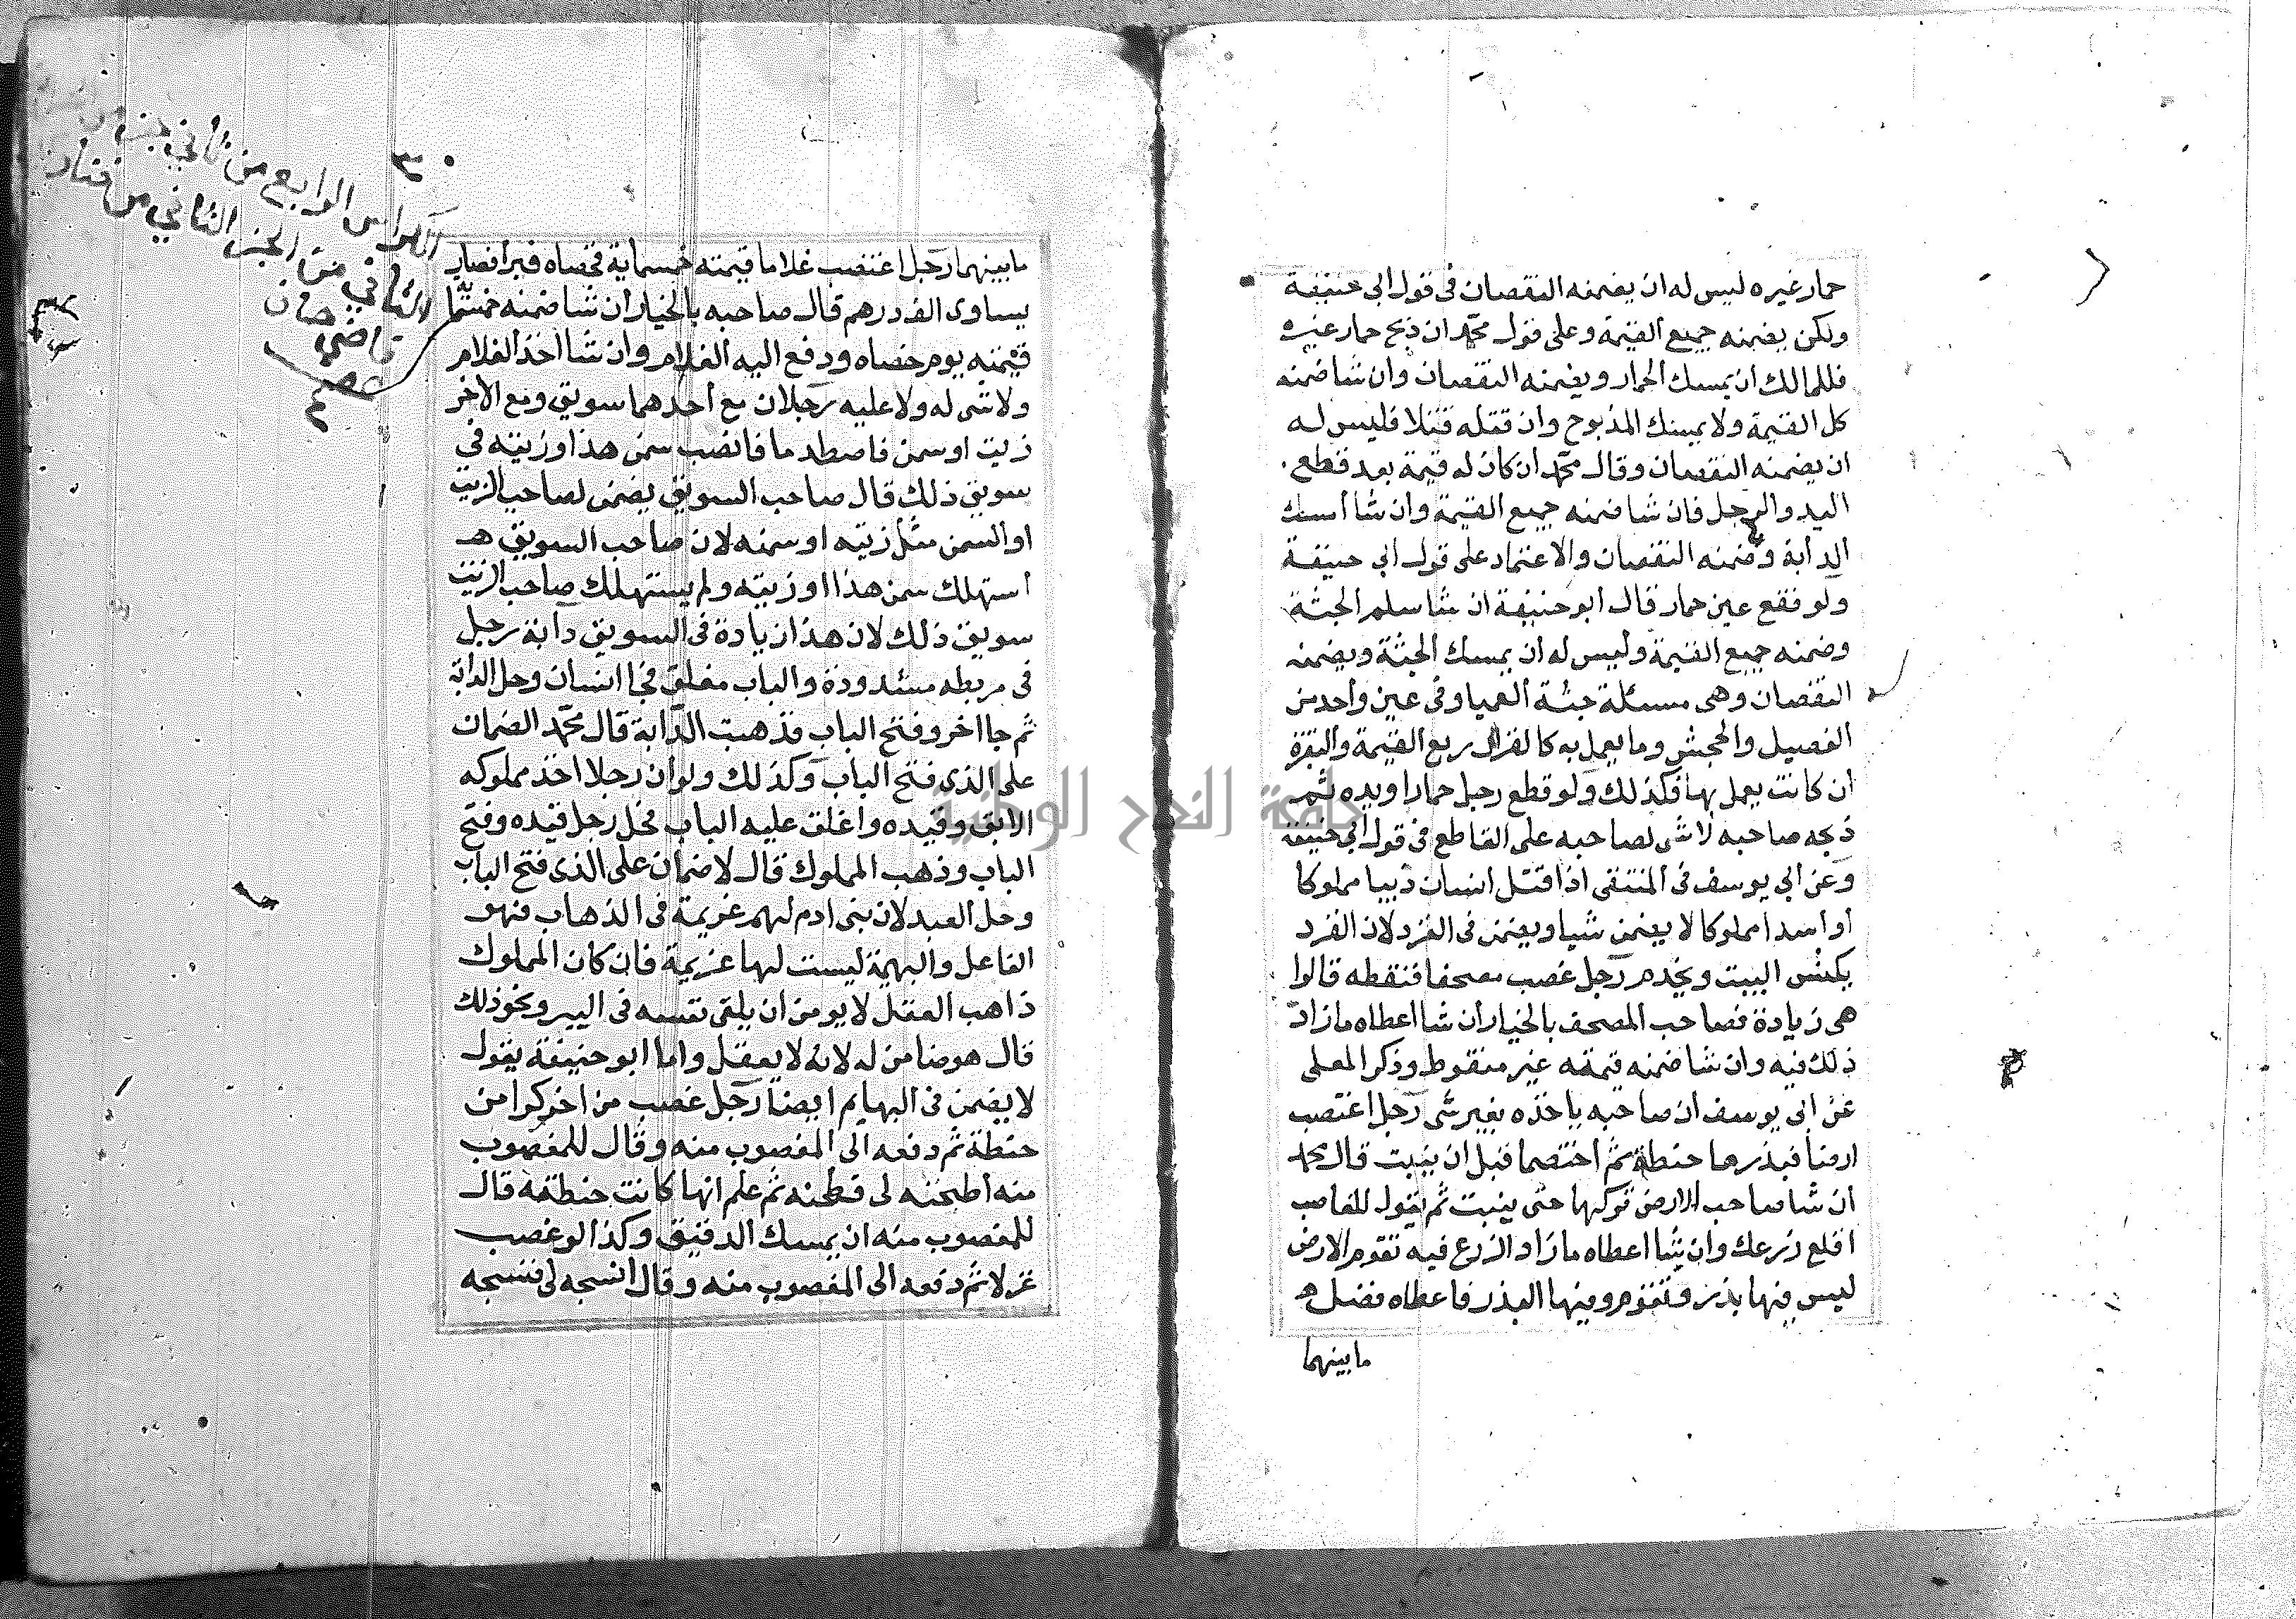 حمار غيره ليس له ان يضمنه النقصان فى قول ابى حنيفة
ولكن يضمنه جميع القيمة وعلى قول محمد ان ذبح حمار غيره
فللمالك ان يمسك الحمار ويضمنه النقصان وان شا ضمنه
كل القيمة ولا يمسك المذبوح وان قتله قتلا فليس له
ان يضمنه النقصان وقال محمد ان كان له قيمة بعد قطع
اليد والرجل فان شا ضمنه جميع القيمة وان شا أمسك
الدابة وضمنه النقصان والاعتماد على قول ابى حنيفة
ولو فقع عين حمار قال ابو حنيفة ان شا سلم الجثة
وضمنه جميع القيمة وليس له ان يمسك الجثة ويضمنه
النقصان وهى مسئلة جثة العميا وفى عين واحد من
الفصيل والجحش وما يعمل به كالفرال ربع القيمة والبقرة
ان كانت يعمل بها فكذلك ولو قطع رجل حمارا ويده ثم
ذبحه صاحبه لا شى لصاحبه على القاطع فى قول ابى حنيفة
وعن ابى يوسف فى المنتقى اذا قتل انسان ذيبا مملوكا
أو أسدا مملوكا لا يضمن شيا ويضمن فى القرد لان القرد
يكنس البيت ويخدم رجل غصب مصحفا فنقطه قالوا
هى زيادة فصاحب المصحف بالخيار أن شا اعطاه ما زاد
ذلك فيه وان شا ضمنه قيمته غير منقوط وذكر المعلى
عن ابى يوسف ان صاحبه ياخذه بغير شى رجل اغتصب
ارضا فبذرها حنطة ثم أختصما قبل ان ينبت قال محمد
أن شا صاحب الارض تركها حتى ينبت ثم يقول للغاصب
اقلع زرعك وان شا اعطاه ما زاد الزرع فيه تقوم الارض
ليس فيها بذر وتقوم وفيها البذر فاعطاه فضل
ما بينهما
٣٠
الكراس الرابع من ثانى
الثانى من الجز الثانى من فتاوى
قاضى خان
ما بينهما رجل اغتصب غلاما قيمته خمسماية فخصاه فبرأ فصار
يساوى الف درهم قال صاحبه بالخيار أن شا ضمنه
قيمته يوم خصاه ودفع اليه الغلام وان شا اخذ الغلام
ولا شى له ولا عليه رجلان مع أحدهما سويق ومع الاخر
زيت او سمن فاصطدما فانصب سمن هذا وزيته فى
سويق ذلك قال صاحب السويق يضمن لصاحب الزيت
او السمن مثل زيته او سمنه لان صاحب السويق هـ
أستهلك سمن هذا او زيته ولم يستهلك صاحب الزيت
سويق ذلك لان هذا زيادة فى السويق دآبة رجل
فى مربطه مشدودة والباب مغلق فجا انسان وحل الدابة
ثم جا اخر وفتح الباب فذهبت الدآبة قال محمد الضمان
على الذى فتح الباب وكذلك ولو ان رجلا اخذ مملوكه
الابق وقيده واغلق عليه الباب فحل رجل قيده وفتح
الباب وذهب المملوك قال لا ضمان على الذى فتح الباب
وحل العبد لان بنى ادم لهم عزيمة فى الذهاب فهو
الفاعل والبهيمة ليست لها عزيمة فان كان المملوك
ذاهب العقل لا يومن ان يلقى نفسه فى البير ونحو ذلك
قال هو ضامن له لانه لا يعقل واما ابو حنيفة يقول
لا يضمن فى البهايم ايضا رجل غصب من اخر كرا من
حنطة ثم دفعه الى المغصوب منه وقال للمغصوب
منه أطحنه لى فطحنه ثم علم انها كانت حنطته قال
للمغصوب منه ان يمسك الدقيق وكذا لو غصب
غزلا ثم دفعه الى المغصوب منه وقال انسجه لى فنسجه
جامعة النجاح الوطنية